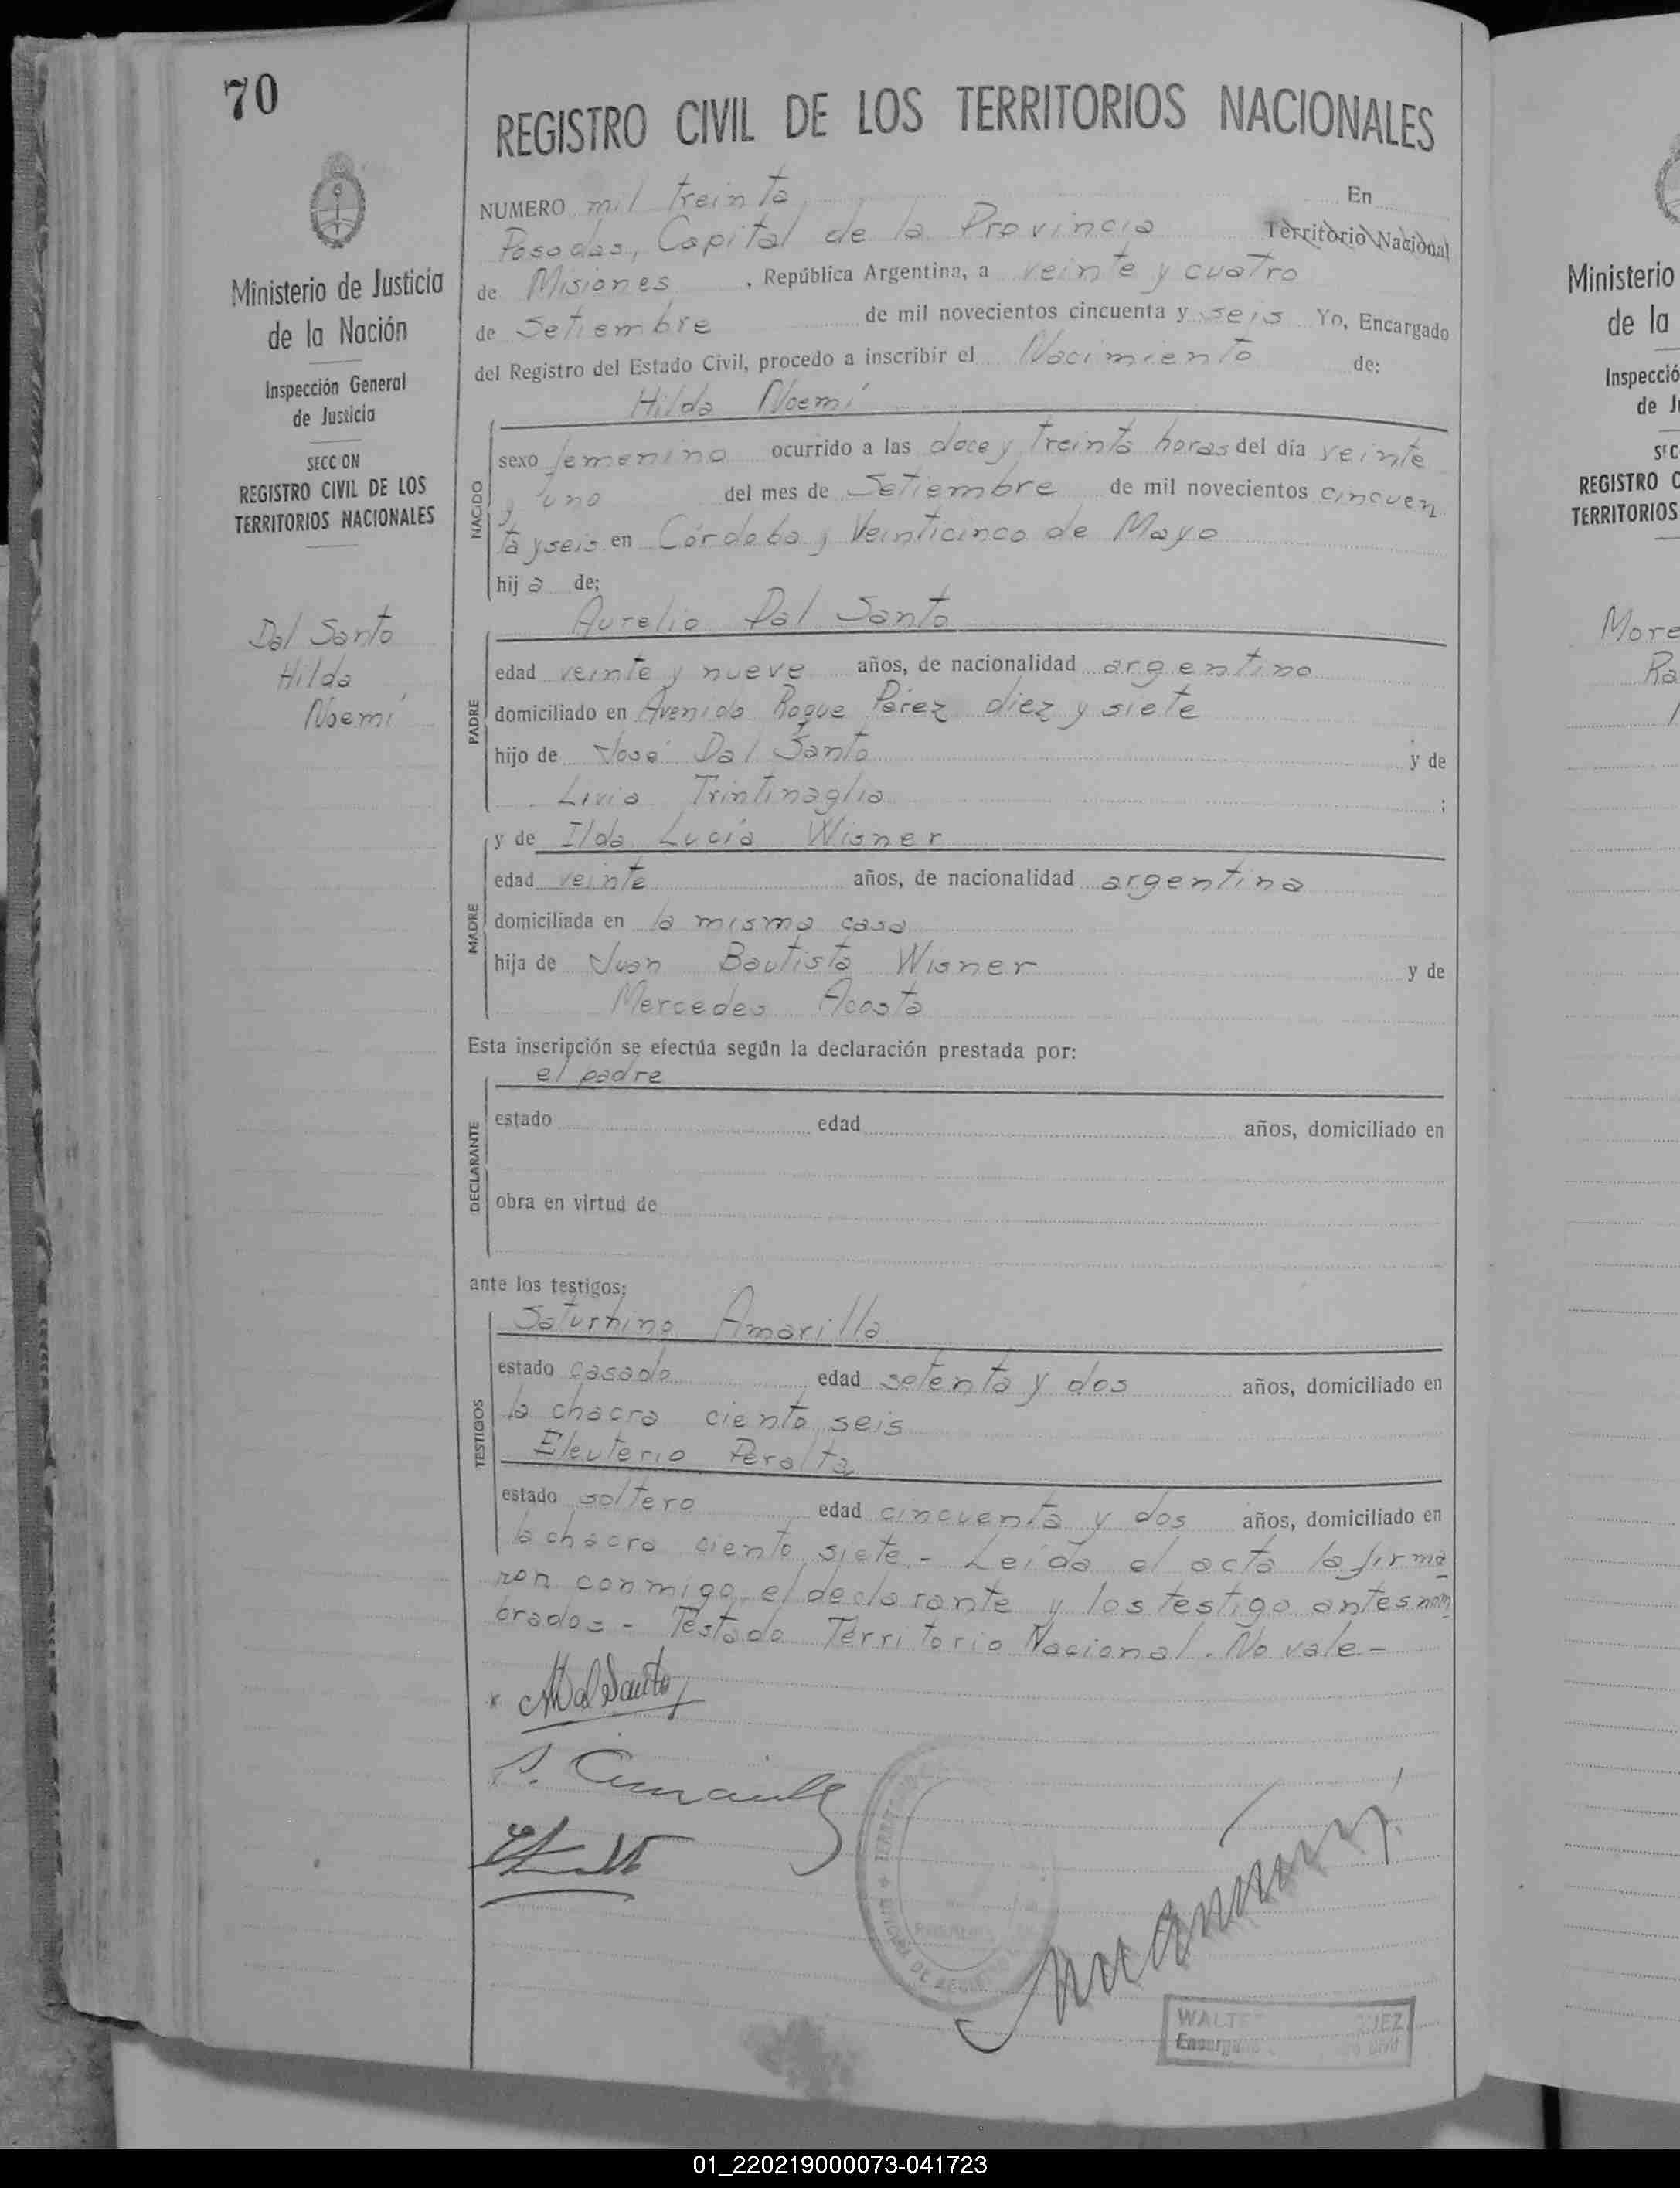 70
REGISTRO CIVIL DE LOS TERRITORIOS NACIONALES
NUMERO mil treinta En
Posadas, Capital de la Provincia Territorio Nacional
de Misiones, República Argentina, a veinte y cuatro
de Setiembre de mil novecientos cincuenta y seis Yo, Encargado
del Registro del Estado Civil, procedo a inscribir el Nacimiento de:
Hilda Noemí
NACIDO
sexo femenino ocurrido a las doce y treinta horas del día veinte
y uno del mes de Setiembre de mil novecientos cincuen
ta y seis en Córdoba y Veinticinco de Mayo
hija de;
Ministerio de Justicia
de la Nación
Inspección General
de Justicia
SECCION
REGISTRO CIVIL DE LOS
TERRITORIOS NACIONALES
Dal Santo
Hilda
Noemí
Aurelio Dal Santo
PADRE
edad veinte y nueve años, de nacionalidad argentino
domiciliado en Avenida Roque Pérez diez y siete
hijo de José Dal Santo y de
Livia Trintinaglia ;
y de Ilda Lucía Wisner
MADRE
edad veinte años, de nacionalidad argentina
domiciliada en la misma casa
hija de Juan Bautista Wisner y de
Mercedes Acosta
Esta inscripción se efectúa según la declaración prestada por:
el padre
DECLARANTE
estado edad años, domiciliado en
obra en virtud de
ante los testigos;
Saturnino Amarilla
TESTIGOS
estado casado edad setenta y dos años, domiciliado en
la chacra ciento seis
Eleuterio Peralta
estado soltero edad cincuenta y dos años, domiciliado en
la chacra ciento siete - Leída el acta la firma
ron conmigo el declarante y los testigo antes nom
brados - Testado Territorio Nacional. No vale -
ADal Santo
Ministerio
de la
Inspecció
REGISTRO C
TERRITORIOS
More
Ra
01_220219000073-041723